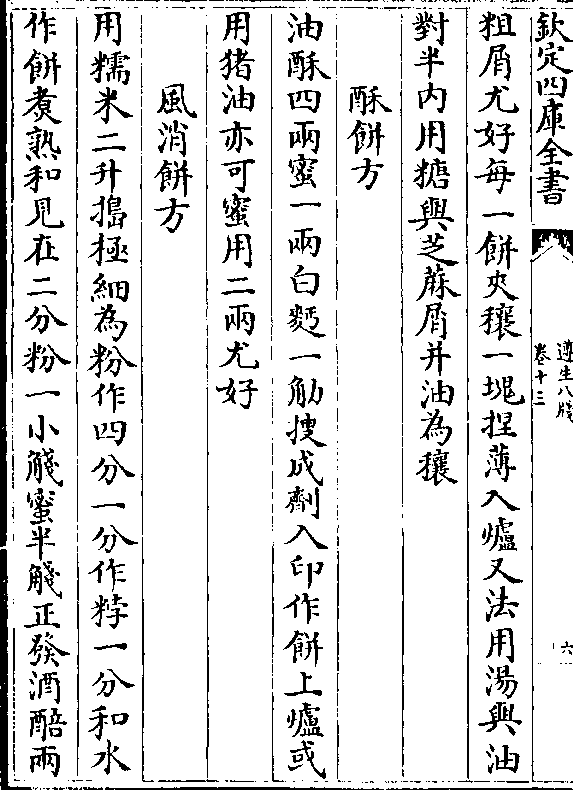 欽定四庫全書
遵生八牋
卷十三
六
粗屑尤好每一餅夾穰一塊捏薄入爐又法用湯與油
對半内用糖與芝蔴屑并油為穰
酥餅方
油酥四兩蜜一兩白麪一觔搜成劑入印作餅上爐或
用猪油亦可蜜用二兩尤好
風消餅方
用糯米二升搗極細為粉作四分一分作䴹一分和水
作餅煑熟和見在二分粉一小觥蜜半觥正發酒醅兩